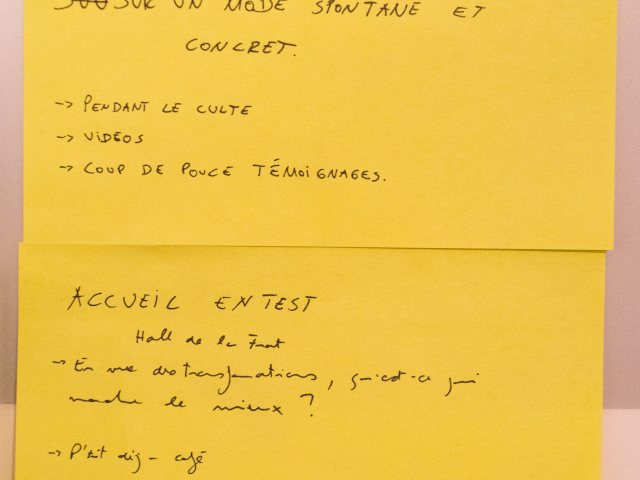 SUR UN MODE SPONTANÉ ET
CONCRET.
-> PENDANT LE CULTE
-> VIDÉOS
-> COUP DE POUCE TÉMOIGNAGES.
ACCUEIL EN TEST
Hall de la Frat
-> En vue des transformations, qu'est-ce qui
marche le mieux ?
-> P'tit dèj - café